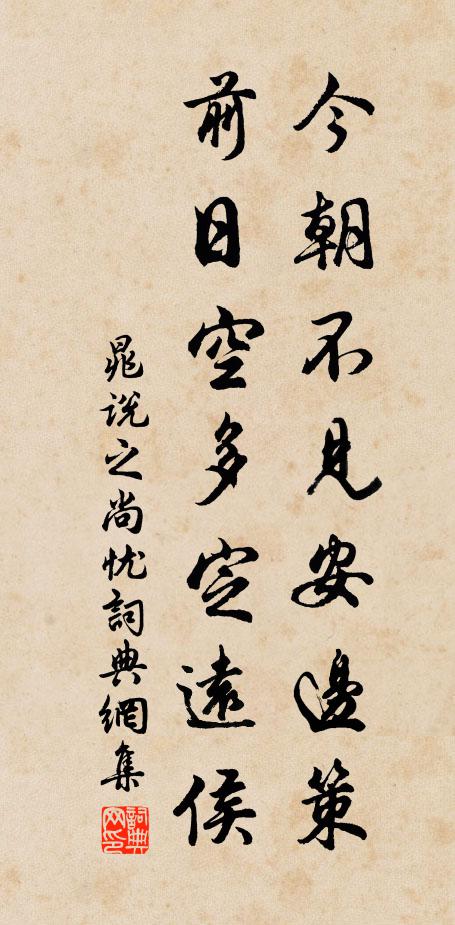 今朝不見安邊策
前日空多定遠侯
晁說之尚忧詞典網集
詞典网印